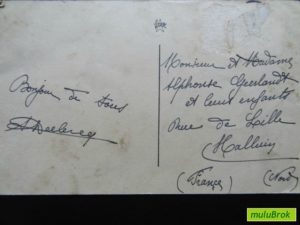 Bonjour de tous
A Declercq
Monsieur et Madame
Alphonse Geerlandt
et leurs enfants
Rue de Lille
Halluin
(France) (Nord)
muluBrok